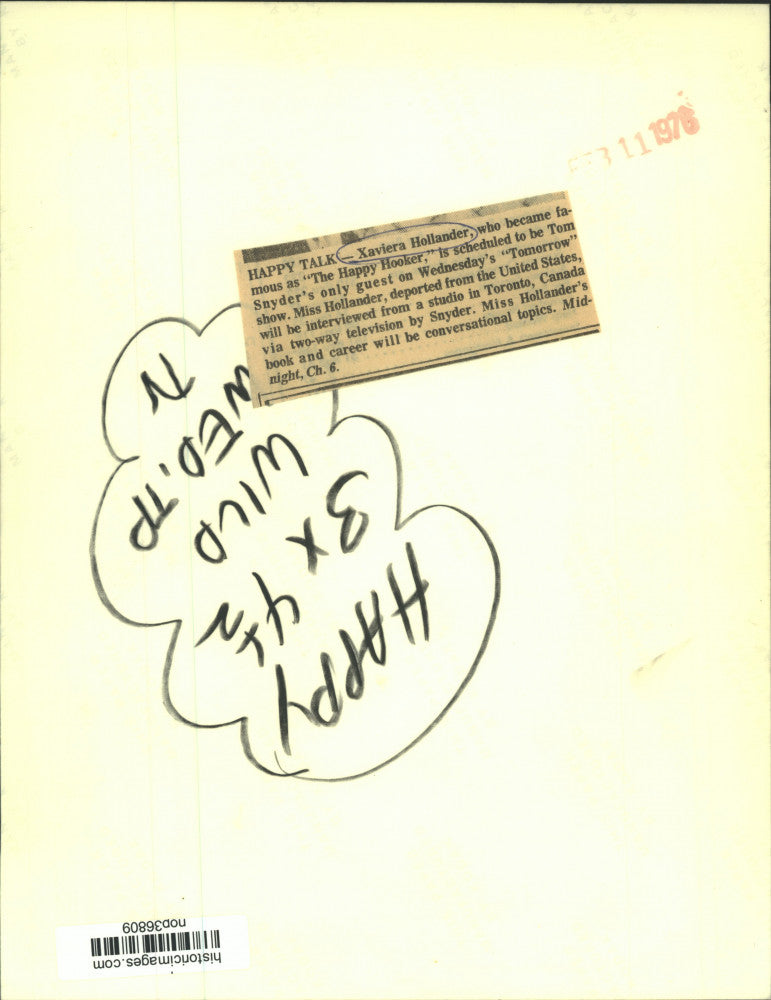 FEB 11 1976
HAPPY TALK — Xaviera Hollander, who became fa-
mous as "The Happy Hooker," is scheduled to be Tom
Snyder's only guest on Wednesday's "Tomorrow"
show. Miss Hollander, deported from the United States,
will be interviewed from a studio in Toronto, Canada
via two-way television by Snyder. Miss Hollander's
book and career will be conversational topics. Mid-
night, Ch. 6.
HAPPY
3 x 4 1/2
WILD
WED. TP
TV
historicimages.com
nop36809